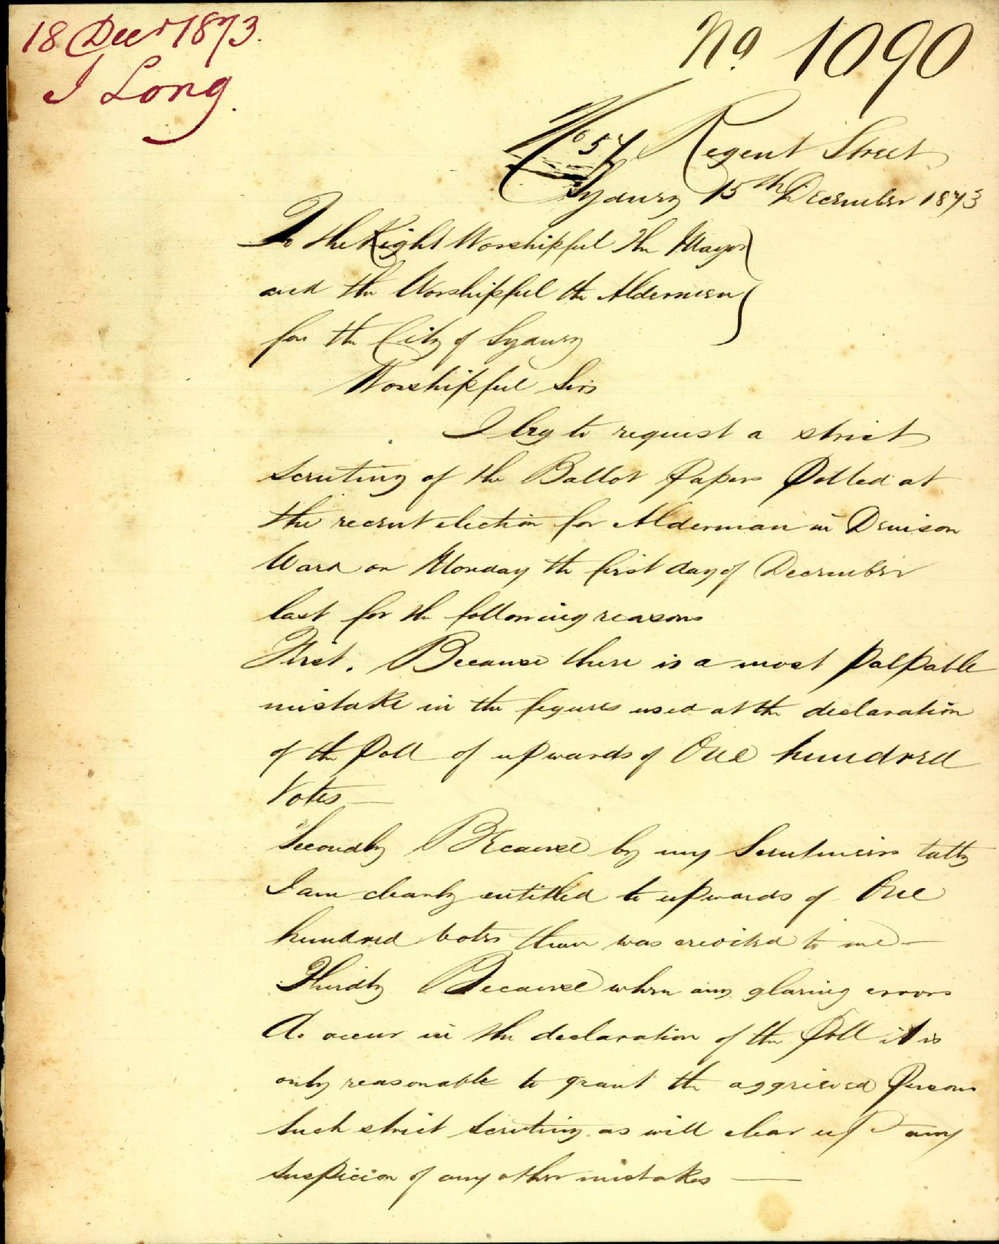 18 Decr 1873.
J Long.
No 1090
No 57 Regent Street
Sydney 15th December 1873
To the Right Worshipful the Mayor
and the Worshipful the Aldermen
for the City of Sydney
Worshipful Sirs
I beg to request a strict
scrutiny of the Ballot Papers Polled at
the recent election for Alderman in Denison
Ward on Monday the first day of December
last for the following reasons
First. Because there is a most palpable
mistake in the figures used at the declaration
of the Poll of upwards of One hundred
Votes —
Secondly Because by my Scrutineers tally
I am clearly entitled to upwards of One
hundred votes than was credited to me —
Thirdly Because when any glaring errors
do occur in the declaration of the Poll it is
only reasonable to grant the aggrieved Person
such strict scrutiny as will clear up any
suspicion of any other mistakes —